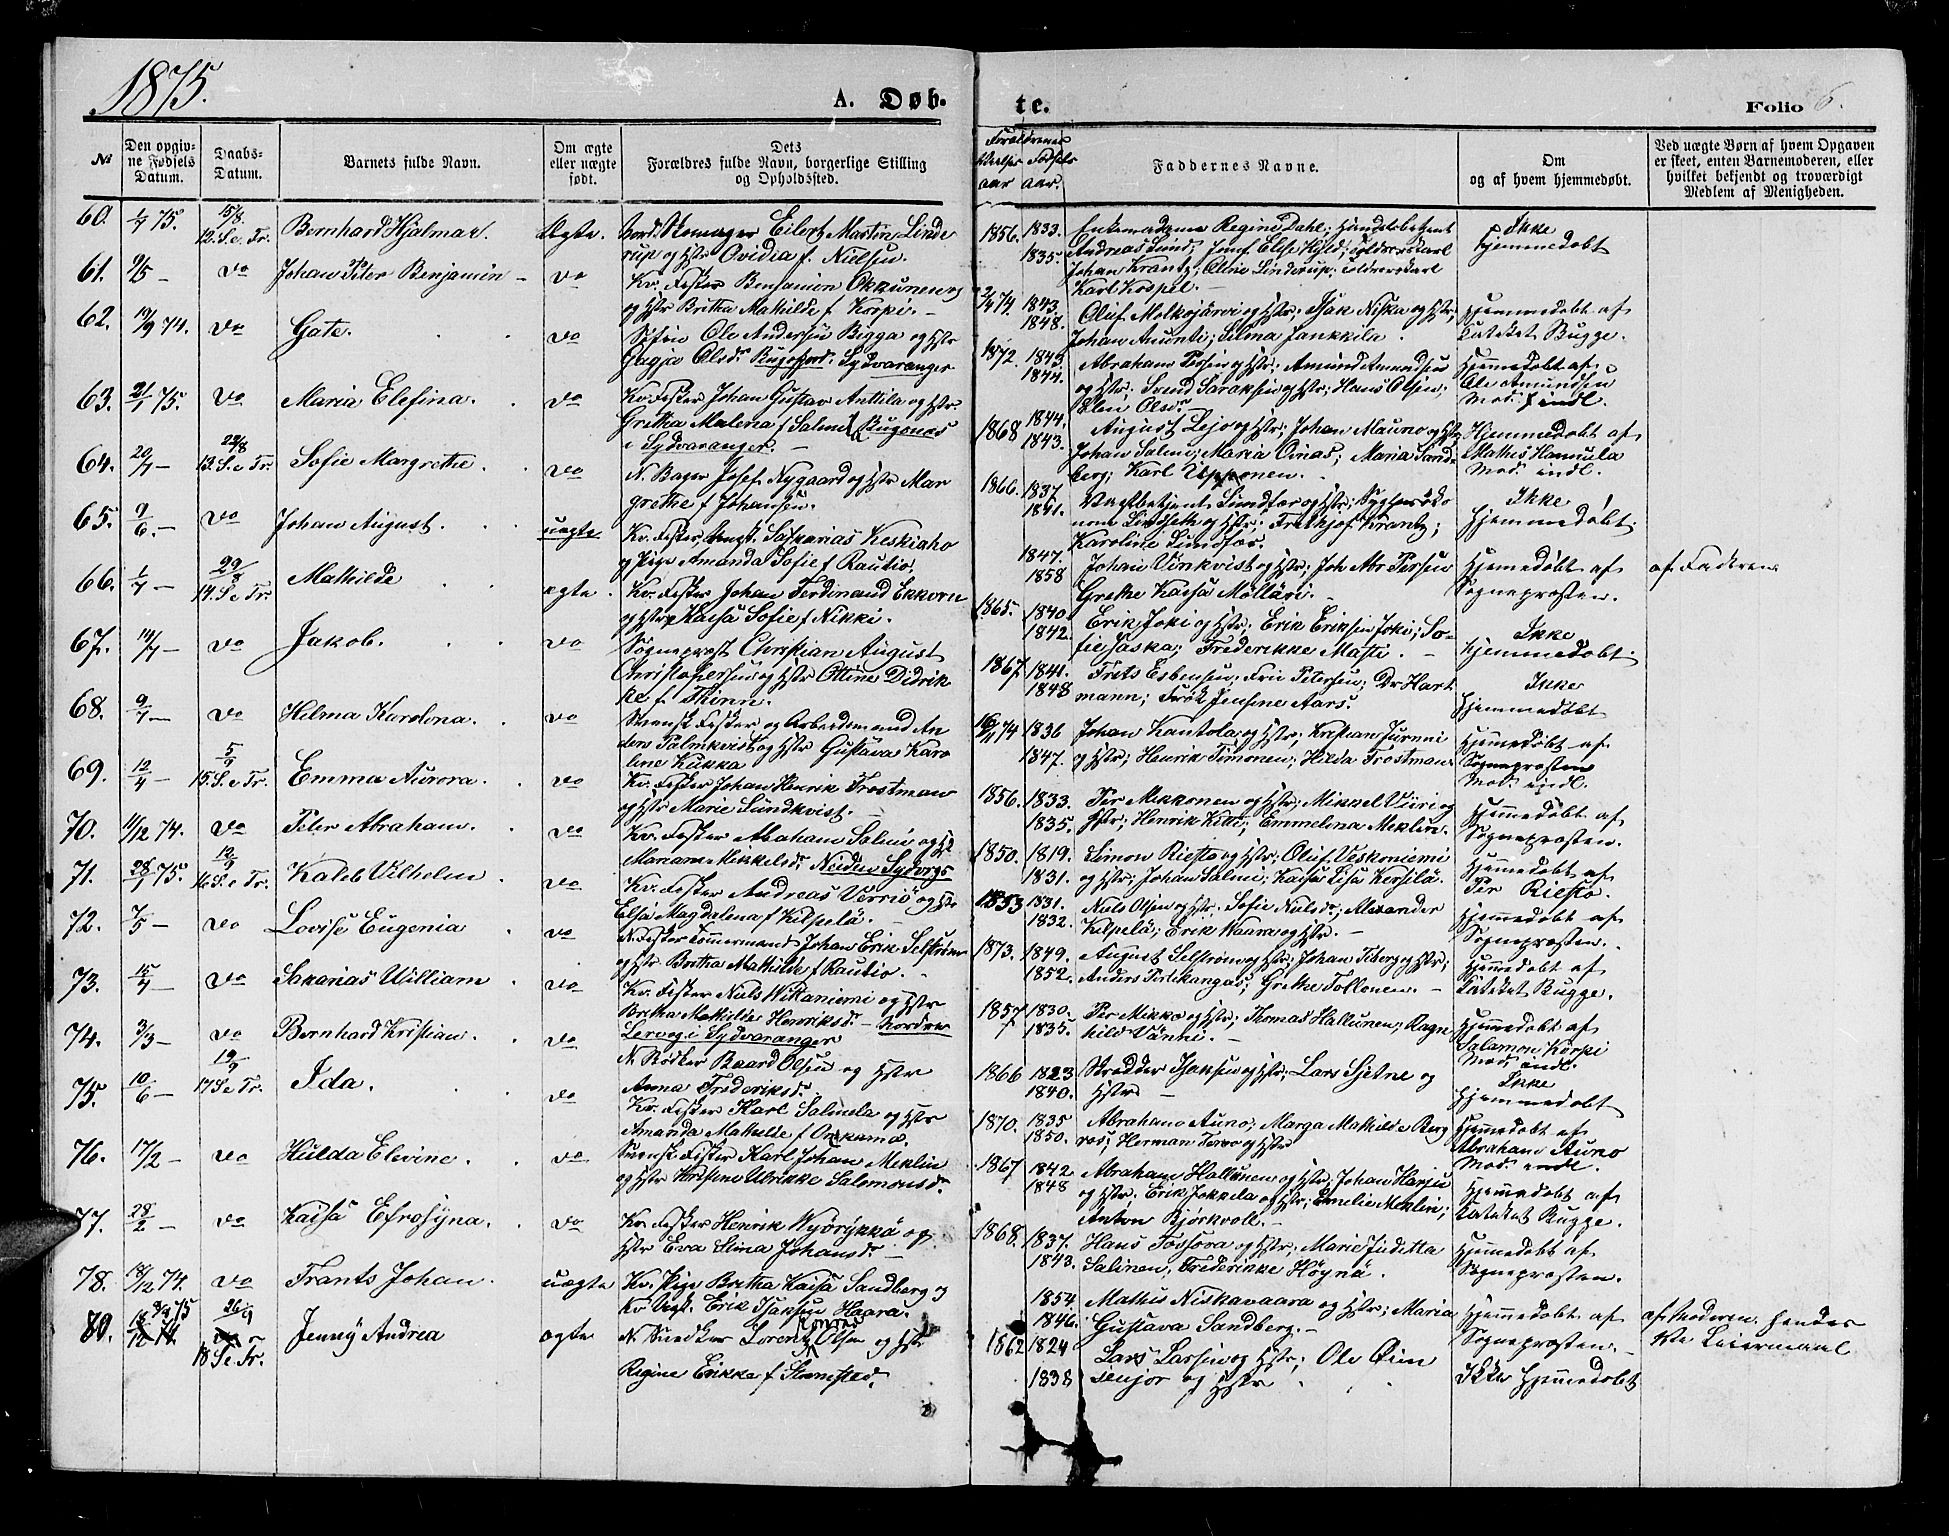 1875.
A. Døb-
te.
Folio 6.
№
Den opgiv-
ne Fødsels
Datum.
Daabs-
Datum.
Barnets fulde Navn.
Om ægte
eller uægte
født.
Dets
Forældres fulde Navn, borgerlige Stilling
og Opholdssted.
Forældrenes
Vielses Fødsels
aar aar.
Faddernes Navne.
Om
og af hvem hjemmedøbt.
Ved uægte Børn af hvem Opgaven
er skeet, enten Barnemoderen, eller
hvilket bekjendt og troværdigt
Medlem af Menigheden.
60. 1/7 75. 15/8 12.S.e.Tr. Bernhard Hjalmar. Ægte.
Eilert Martin Linde
rup og Hstr Ovidia f. Nielsen.
1856. 1833.
1835.
Enkemadame Regine Dahl; Handelsbetjent
Andreas Lund; Jomf. Else Hyld;
Johan Krantz; Oline Linderup;
Karl Kospel. -
Ikke
Hjemmedøbt
61. 9/5 - do Johan Peter Benjamin - do
Kv. Fisker Benjamin Okkunen og
og Hstr Britha Mathilde f. Korpi. -
2/4 74. 1843.
1848.
Oluf Molkojærvi og Hstr; Isak Niska og Hstr;
Johan Auunti; Selma Jankkila.
Hjemmedøbt af
Katekat Bugge.
62. 19/9 74. do Gate. do
Søfin Ole Andersen Bigga og Hstr
Gagja Olsdr Bugøfjord. Sydvaranger
1872. 1843
1844.
Abraham Persen og Hstr; Amund Amundsen
og Hstr; Svend Saraksen og Hstr; Hans Olsen;
Elen Olsdr
Hjemmedøbt af
Ole Amundsen
Mod. indl.
63. 21/1 75. do Maria Elefina. do
Kv. Fisker Johan Gustav Anttila og Hstr.
Gretha Malena f Salmi Bugønæs
i Sydvaranger. -
1868 1844.
1843.
August Lejo og Hstr; Johan Mauno og Hstr
Johan Salmi; Maria Oinas; Maria Sand-
berg; Karl Upponen.
Hjemmedøbt af
Mathis Hannula
Mod. indl.
64. 20/7 - 22/8 13.S.e.Tr. Sofie Margrethe. do
N. Bager Josef Nygaard og Hstr Mar
grethe f Johansen.
1866. 1837
1841.
Lindfor og Hstr;
Lindseth og Hstr; Frithjof Krantz;
Karoline Lindfor.
Ikke
Hjemmedøbt.
65. 9/6. - do Johan August. uægte
Kv. Fisker Ungk. Safkarias Keskiaho
og Pige Amanda Sofie f Rautio.
1847.
1858
Johan Vinkvist og Hstr; Joh Abr Persen
Grethe Kaisa Mollari.
Hjemmedøbt af
Sognepresten.
af Faderen
66. 1/7 - 29/8 14.S.e.Tr. Mathilde ægte.
Kv. Fisker Johan Ferdinand Ekkorn
og Hstr Kaisa Sofie f Nikki.
1865. 1840
1842.
Erik Joki og Hstr; Erik Eriksen Joki; So-
fie Jaska; Frederikke Masti. -
Ikke
Hjemmedøbt.
67. 14/7 - do Jakob. do
Sogneprest Christian August
Christophersen og Hstr Ottine Didrik
ke f Thinn.
1867 1841.
1848
Frits Esbensen; Frue Petersen; Dr Hart
mann; Frøk Jensine Aars.
Ikke
Hjemmedøbt
68. 9/7 - do Helma Karolina. do
Svensk Fisker og Arbeidsmand An
ders Palmkvist og Hstr Gustava Karo
line Kukka
16/11 74 1836
1847.
Johan Kantola og Hstr; Kristian Jurnni
og Hstr; Henrik Timonen; Hilda Frostman
Hjemmedøbt af
Sognepresten
Mod. indl.
69. 12/4 - 5/9 15.S.e.Tr. Emma Aurora. do
Kv. Fisker Johan Henrik Frostman
og Hstr Marie Sundkvist.
1856. 1833.
1835.
Per Mikkonen og Hstr; Mikkel Viiri og
Hstr; Henrik Kitti; Emmelina Meklin.
Hjemmedøbt af
Sognepresten.
70. 11/12 74. do Peter Abraham. do
Kv. Fisker Abraham Salmi og Hst
Mariane Mikkelsdr Neiden Sydvrgr
1850. 1819.
1831.
Simon Riesto og Hstr; Oluf Veskoniemi
og Hstr; Johan Salmi; Kaisa Lisa Kersilä.
Hjemmedøbt af
Per Riesto.
71. 28/1 75. 12/9 16.S.e.Tr. Kaleb Vilhelm do
Kv. Fisker Andreas Verriö og Hst
Elsa Magdalena f Kilpelä. -
1853 1831.
1832.
Niels Olsen og Hstr. Sofie Nielsdr; Alexander
Kilpelä; Erik Vaara og Hstr. -
Hjemmedøbt af
Sognepresten.
72. 7/5 - do Lovise Eugenia do
N. Fisker Tømmermand Johan Erik Selstrøm
og Hstr Britha Mathilde f Rautio.
1873. 1849.
1852.
August Selstrøm og Hstr; Johan Fiberg og Hstr;
Anders Pertikangas; Grethe Tollonen. -
Hjemmedøbt af
Katekat Bugge.
73. 15/4 - do Sakarias William do
Kv. Fisker Niels Wittaniemi og Hstr
Britha Mathilde Henriksdr - Nordre
Lervog i Sydvaranger
1857 1830.
1835.
Per Mikko og Hstr; Thomas Hallunen; Ragn
hild Vänni. -
Hjemmedøbt af
Salamon Korpi
Mod. indl.
74. 3/3 - do Bernhard Kristian. do
N. Rodker Baard Olsen og Hstr
Anna Frederiksdr
1866 1823
1840.
Skrædder Isaksen og Hstr; Lars Sjetne og
Hstr -
Ikke
Hjemmedøbt
75. 10/6 - 19/9 17 S.e.Tr. Ida. do
Kv. Fisker Karl Salmela og Hstr
Amanda Mathilde f Onkamo.
1870. 1835
1850.
Abraham Auno; Marga Mathilde Berg
ros; Herman Tervo og Hstr
Hjemmedøbt af
Abraham Auno
Mod. indl.
76. 17/2 - do Hulda Elevine. do
Svensk Fisker Karl Johan Meklin
og Hstr Kristine Ulrikke Salomonsdr
1867 1842
1848
Abraham Hallunen og Hstr; Johan Harju
og Hstr. Erik Jokkela og Hstr; Emelie Meklin;
Anton Bjørkvoll. -
Hjemmedøbt af
Katekat Bugge.
77. 28/2 - do Kaisa Efrosyna. do
Kv. Fisker Henrik Wyörykkä og
Hstr Eva Stina Johansdr -
1868. 1837.
1843.
Hans Tossora og Hstr; Marie Judetta
Salinen; Frederikke Höynä.
Hjemmedøbt af
Sognepresten.
78. 18/12 74. do Frants Johan. uægte
Kv. Pige Britha Kaisa Sandberg og
Kv. Ungk. Erik Isaksen Haara.
1854
1846.
Mathis Niskavaara og Hstr; Maria
Gustava Sandberg. -
Hjemmedøbt af
Sognepresten. -
af Moderen. Hendes
Leiermaal
80. 8/9 75 26/9 18 S.e.Tr. Jenny Andrea ægte
N. Snedker Lorentz Konrad Olsen og Hstr
Regine Erikke f Stamsted.
1862 1824
1838
Lars Larsen og Hstr; Ole Øien
senjor og Hstr
Ikke Hjemmedøbt